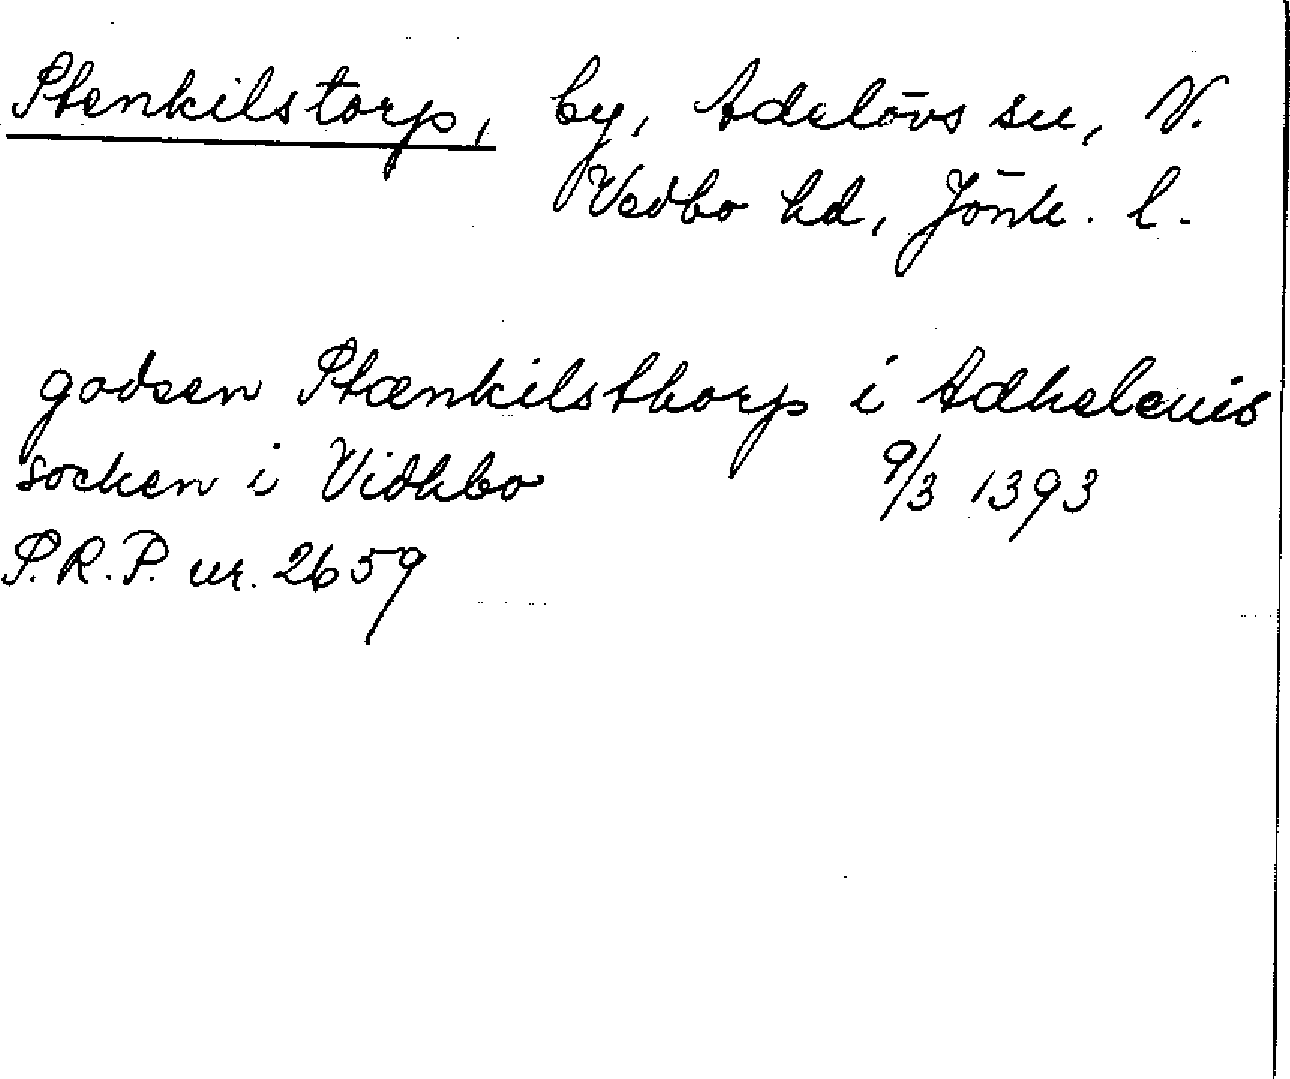 Stenkilstorp, by, Adelövs sn, N.
Vedbo hd, Jönk. l.
godsen Stænkilsthorp i Adheleuis
socken i Vidhbo 9/3 1393
S.R.P. nr. 2659